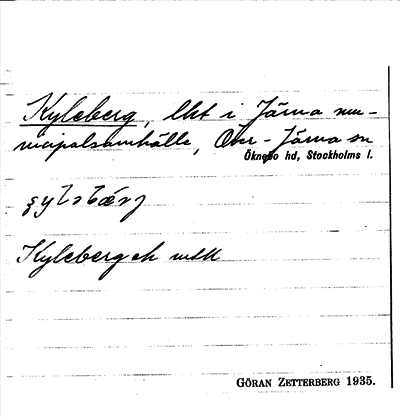 Kyleberg, lht i Järna mu-
nicipalsamhälle, Över-Järna sn
Öknebo hd, Stockholms l.
Kyleberg
GÖRAN ZETTERBERG 1935.